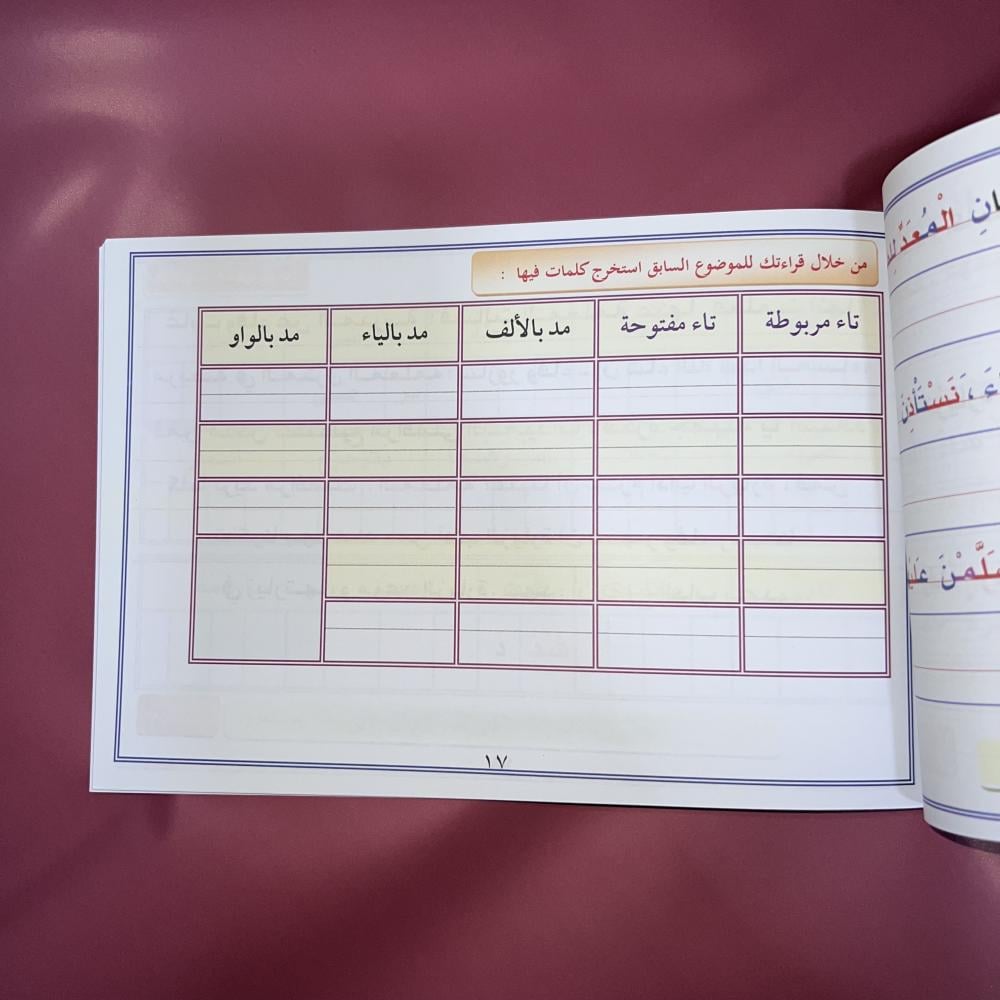 من خلال قراءتك للموضوع السابق استخرج كلمات فيها :
تاء مربوطة تاء مفتوحة مد بالألف مد بالياء مد بالواو
١٧
الْمُعَدِّ
نَسْتَأْذِنَ